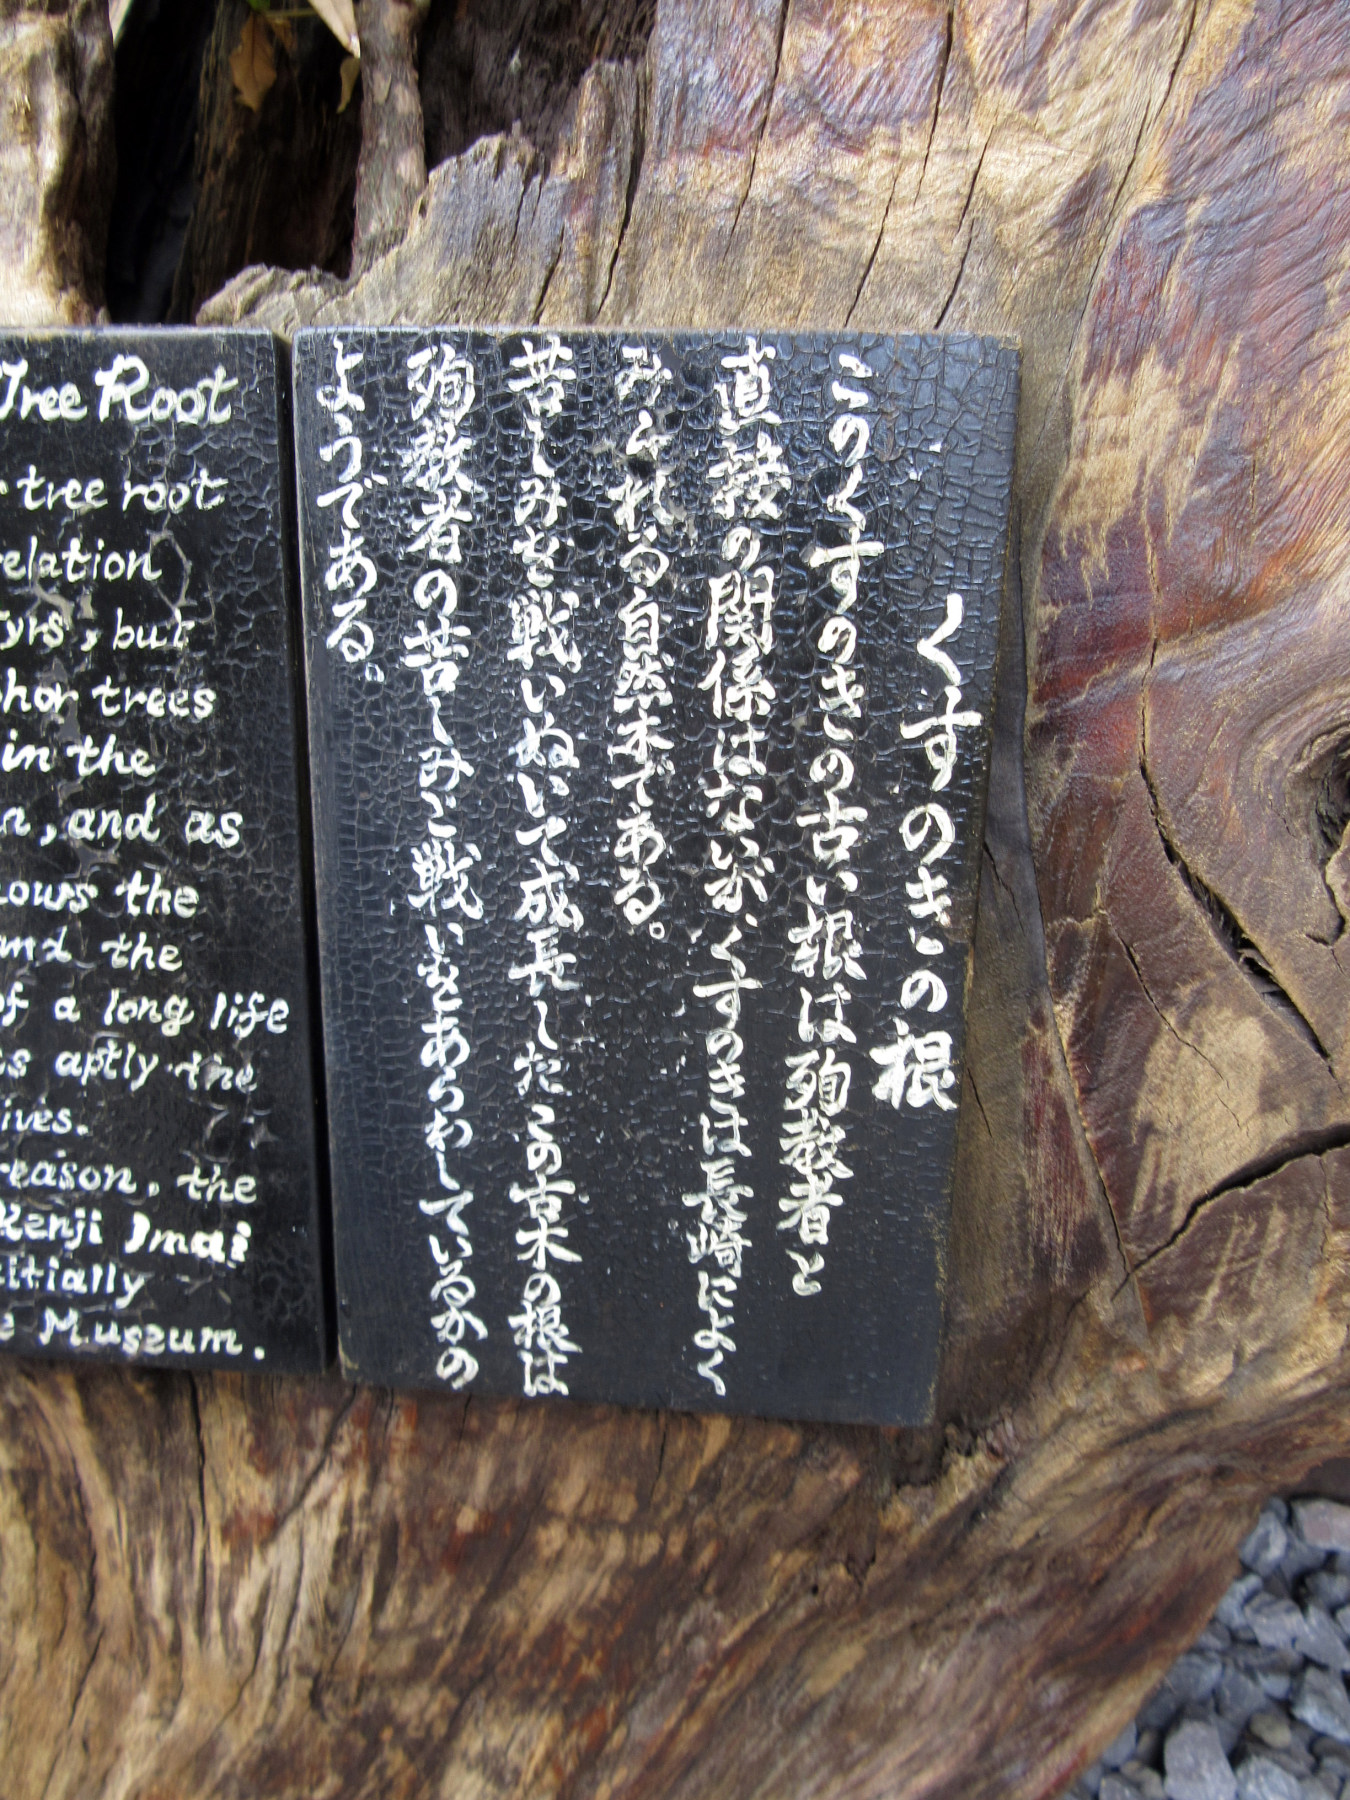 くすのきの根
このくすのきの古い根は殉教者と
直接の関係はないが、くすのきは長崎によく
みられる自然木である。
苦しみを戦いぬいて成長したこの古木の根は
殉教者の苦しみと戦いをあらわしているかの
ようである。
Tree Root
tree root
relation
tyrs, but
phor trees
in the
n, and as
hows the
and the
of a long life
is aptly the
ives.
reason, the
Kenji Imai
itially
e Muszum.